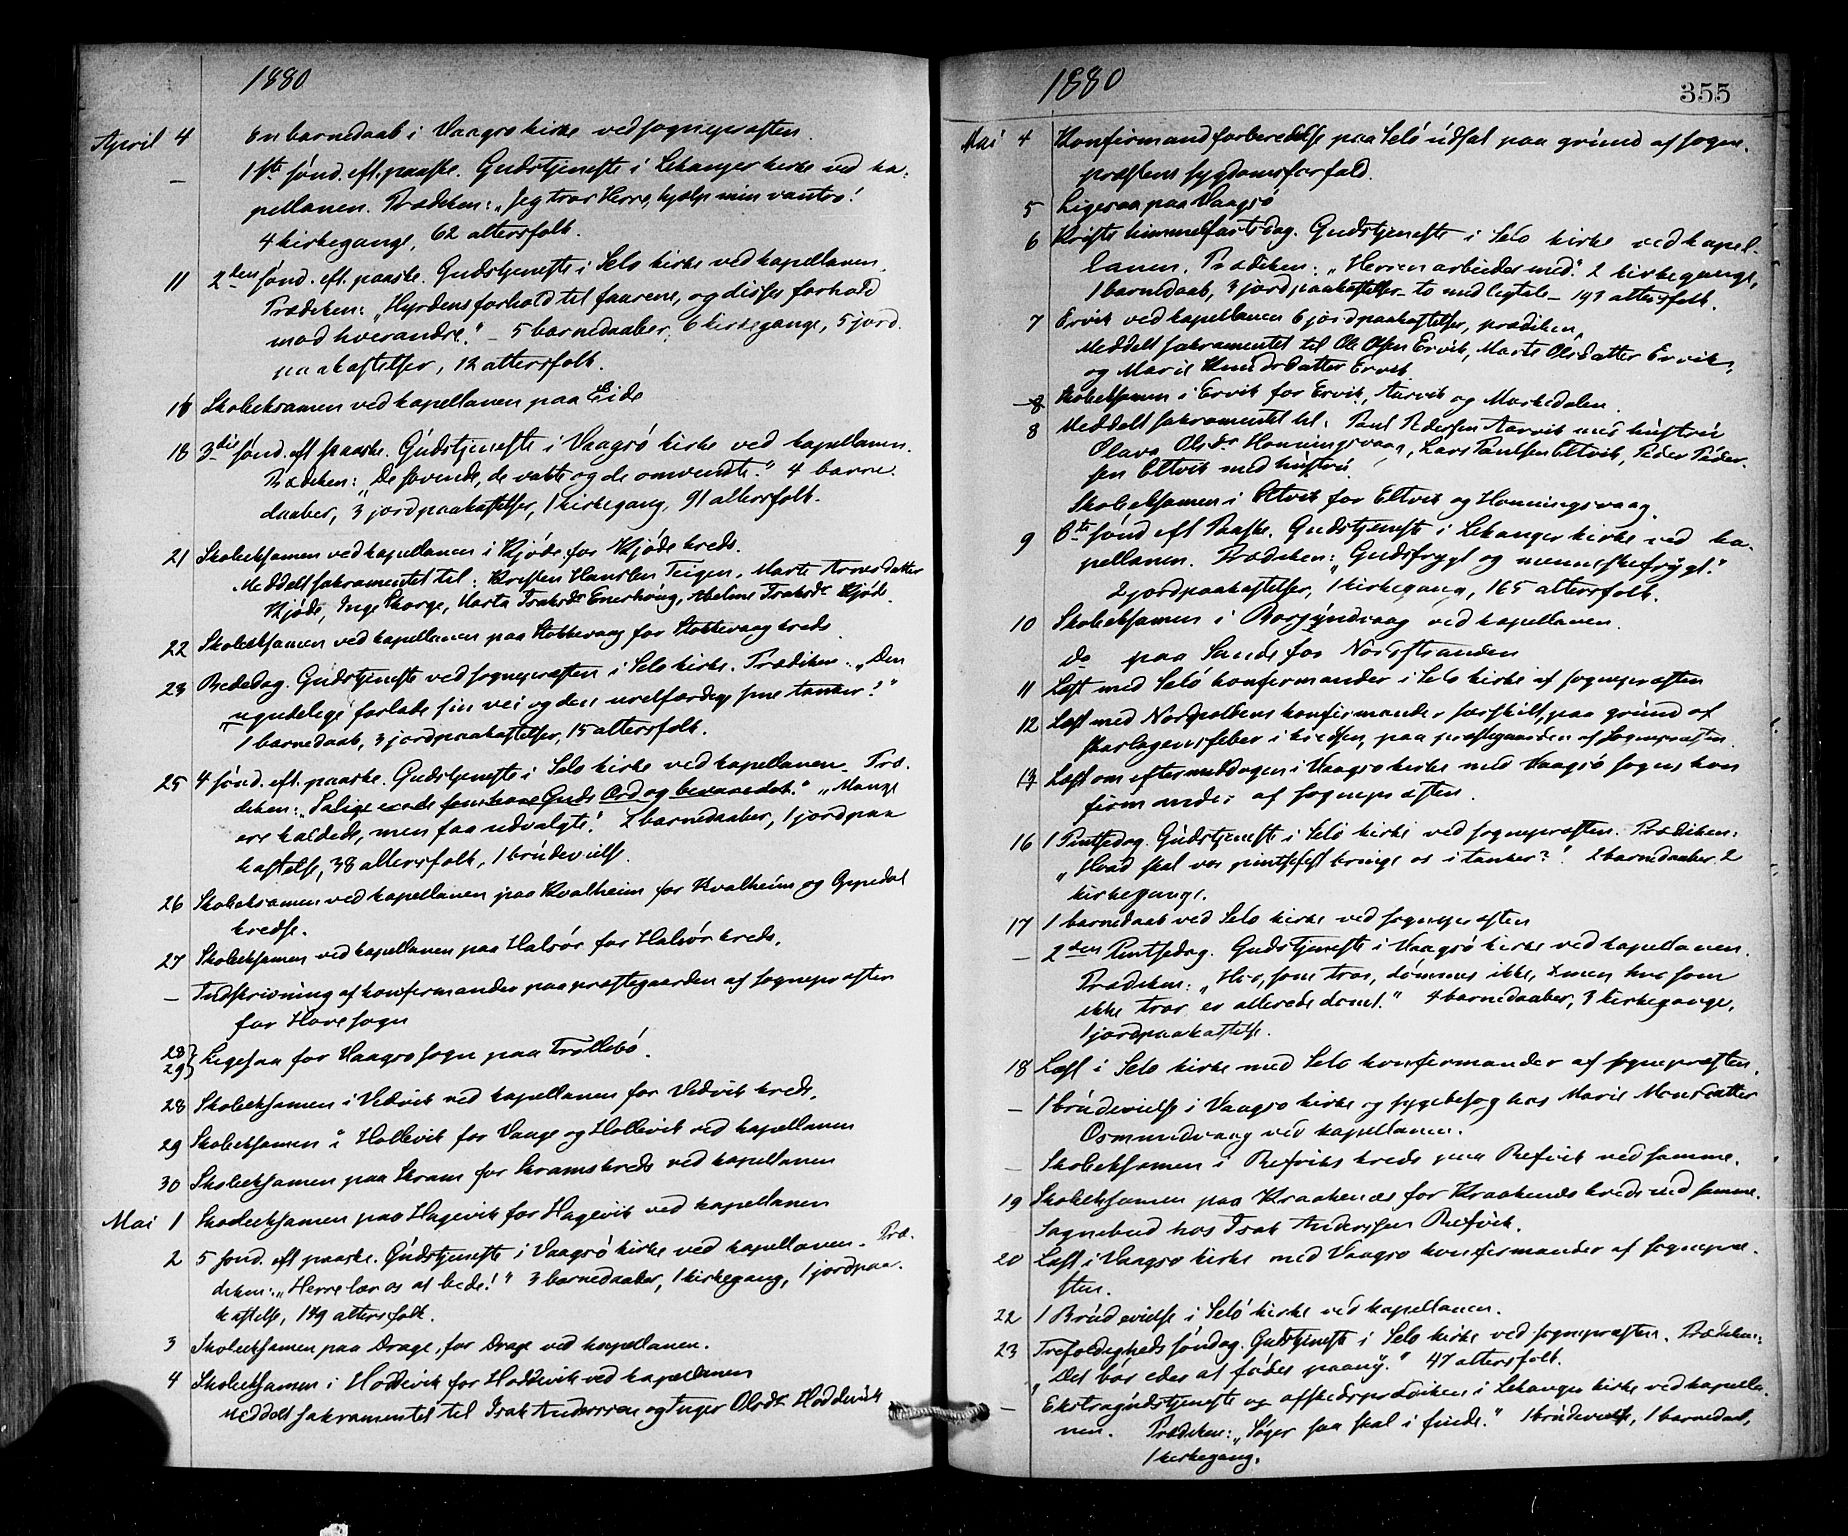 1880
April 4 En barnedaab i Vaagsø kirke ved sognepræsten.
— 1ste sønd. eft. paaske. Gudstjeneste i Lekanger kirke ved ka-
pellanen. Prædiken: „Jeg tror Herre, hjælp min vantro!
4 kirkegange, 62 altersfolk.
11 2den sønd. eft. paaske. Gudstjeneste i Selø kirke ved kapellanen.
Prædiken: „Hyrdens forhold til faarene, og disses forhold
mod hverandre." – 5 barnedaaber, 6 kirkegange, 5 jord-
paakastelser, 12 altersfolk.
16 Skoleeksamen ved kapellanen paa Eide
18 3die sønd. eft. paaske. Gudstjeneste i Vaagsø kirke ved kapellanen.
Prædiken: „De sovende, de vakte og de omvendte." 4 barne-
daaber, 3 jordpaakastelser, 1 kirkegang, 91 altersfolk.
21 Skoleeksamen ved kapellanen i Kjøde for Kjøde kreds.
Meddelt sakramentet til: Kristen Hanssen Teigen, Marte Arnesdatter
Kjøde, Inge Skorge, Marta Isaksdr Enerhoug, Abeline Isaksdr Kjøde.
22 Skoleeksamen ved kapellanen paa Stokkevaag for Stokkevaag kreds
23 Bededag. Gudstjeneste ved sognepræsten i Selø kirke. Prædiken: „Den
ugudelige forlade sin vei og den uretfærdige sine tanker!"
1 barnedaab, 3 jordpaakastelser, 15 altersfolk.
25 4 sønd. eft. paaske. Gudstjeneste i Selø kirke ved kapellanen. Præ-
diken: „Salige ere de som høre Guds Ord og bevare det." „Mange
ere kaldede, men faa udvalgte." 2 barnedaaber, 1 jordpaa-
kastelse, 38 altersfolk, 1 brudevielse.
26 Skoleeksamen ved kapellanen paa Kvalheim for Kvalheim og Oppedal
kredse.
27 Skoleeksamen ved kapellanen paa Halsør for Halsør kreds.
— Indskrivning af konfirmander paa præstegaarden af sognepræsten
for Hovesogn
28
29} Ligesaa for Vaagsø sogn paa Trollebø.
28 Skoleeksamen i Vedvik ved kapellanen for Vedvik kreds.
29 Skoleeksamen i Hollevik for Vaage og Hollevik ved kapellanen
30 Skoleeksamen paa Skram for Skrams kreds ved kapellanen
Mai 1 Skoleeksamen paa Hagevik for Hagevik ved kapellanen
2 5 sønd. eft. paaske. Gudstjeneste i Vaagsø kirke ved kapellanen. Præ-
diken: „Herre lær os at bede!" 3 barnedaaber, 1 kirkegang, 1 jordpaa-
kastelse, 149 altersfolk.
3 Skoleeksamen paa Drage for Drage ved kapellanen.
4 Skoleeksamen i Hoddevik for Hoddevik ved kapellanen
Meddelt sakramentet til Isak Anderssen og Inger Olsdr Hoddevik
1880
355
Mai 4 Konfirmandforberedelse paa Selø udsat paa grund af sogne-
præstens sygdomsforfald.
5 Ligesaa paa Vaagsø
6 Kristi himmelfartsdag. Gudstjeneste i Selø kirke ved kapel-
lanen. Prædiken: „Herren arbeider med." 2 kirkegange,
1 barnedaab, 3 jordpaakastelser – to med ligtale – 143 altersfolk.
7 Ervik ved kapellanen 6 jordpaakastelser, prædiken,
Meddelt sakramentet til Ole Olsen Ervik, Marte Olsdatter Ervik,
og Marie Knudsdatter Ervik
8 Skoleeksamen i Ervik for Ervik, Aarvik og Morkedalen.
8 Meddelt sakramentet til: Paul Pedersen Aarvik med hustru
Olava Olsdr Honningsvaag, Lars Paulsen Eltvik, Peder Peder-
sen Eltvik med hustru
Skoleeksamen i Eltvik for Eltvik og Honningsvaag.
9 6te sønd eft Paaske. Gudstjeneste i Lekanger kirke ved ka-
pellanen. Prædiken: „Gudsfrygt og menneskefrygt."
2 jordpaakastelser, 1 kirkegang, 165 altersfolk.
10 Skoleeksamen i Borgundvaag ved kapellanen.
do paa Sande for Nordstranden
11 Læst med Selø konfirmander i Selø kirke af sognepræsten
12 Læst med Nordpoldens konfirmander særskilt, paa grund af
skarlagensfeber i kredsen, paa præstegaarden af Sognepræsten.
13 Læst om eftermiddagen i Vaagsø kirke med Vaagsø sogns kon
firmander af sognepræsten.
16 1 Pintsedag. Gudstjeneste i Selø kirke ved sognepræsten. Prædiken:
„Hvad skal vor pintsefest bringe os i tanker?". 2 barnedaaber. 2
kirkegange.
17 1 barnedaab ved Selø kirke ved sognepræsten
— 2den Pintsedag. Gudstjeneste i Vaagsø kirke ved kapellanen.
Prædiken: „Hver, som tror, dømmes ikke, men hvo som
ikke tror er allerede dømt." 4 barnedaaber, 3 kirkegange,
1 jordpaakastelse.
18 Læst i Selø kirke med Selø konfirmander af sognepræsten.
— 1 brudevielse i Vaagsø kirke og sygebesøg hos Marie Monsdatter
Osmundvaag ved kapellanen.
— Skoleeksamen i Refviks kreds paa Refvik ved samme.
19 Skoleeksamen paa Kraakenæs for Kraakenæs kreds ved samme.
Sognebud hos Isak Anderssen Refvik.
20 Læst i Vaagsø kirke med Vaagsø konfirmander af sognepræ-
sten.
22 1 Brudevielse i Selø kirke ved kapellanen.
23 Trefoldigheds søndag. Gudstjeneste i Selø kirke ved sognepræsten. Prædiken:
„Det bør eder at fødes paany." 47 altersfolk.
— Ekstragudstjeneste og afskedsprædiken i Lekanger kirke ved kapella-
nen. Prædiken: „Søger saa skal i finde." 1 brudevielse, 1 barnedaab,
1 kirkegang.